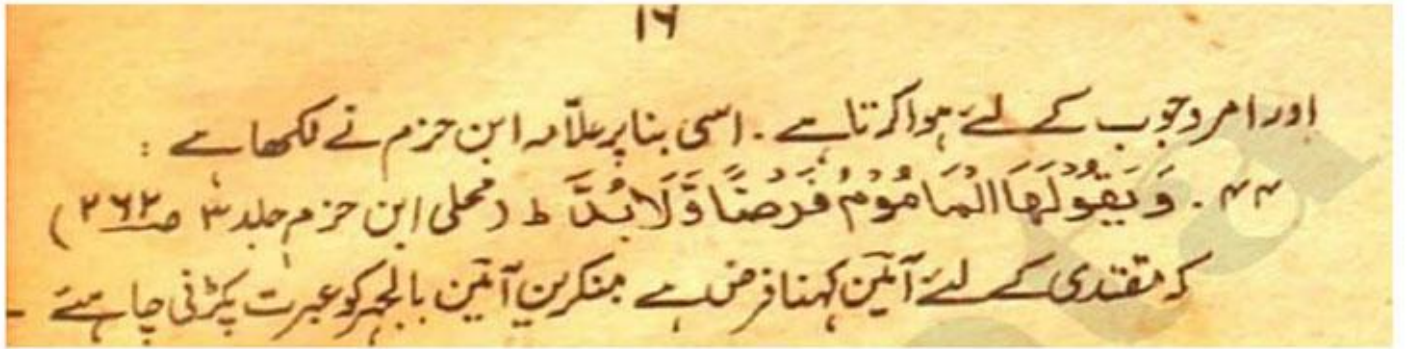 ۱۶
اور امر وجوب کے لئے ہوا کرتا ہے۔ اسی بنا پر علّامہ ابن حزم نے لکھا ہے :
۴۴۔ وَيَقُوْلُهَا الْمَامُوْمُ فَرْضًا وَّلَا بُدَّ ط (محلی ابن حزم جلد ۳ صـ ۲۶۲)
کہ مقتدی کے لئے آمین کہنا فرض ہے منکرینِ آمین بالجہر کو عبرت پکڑنی چاہئے ۔